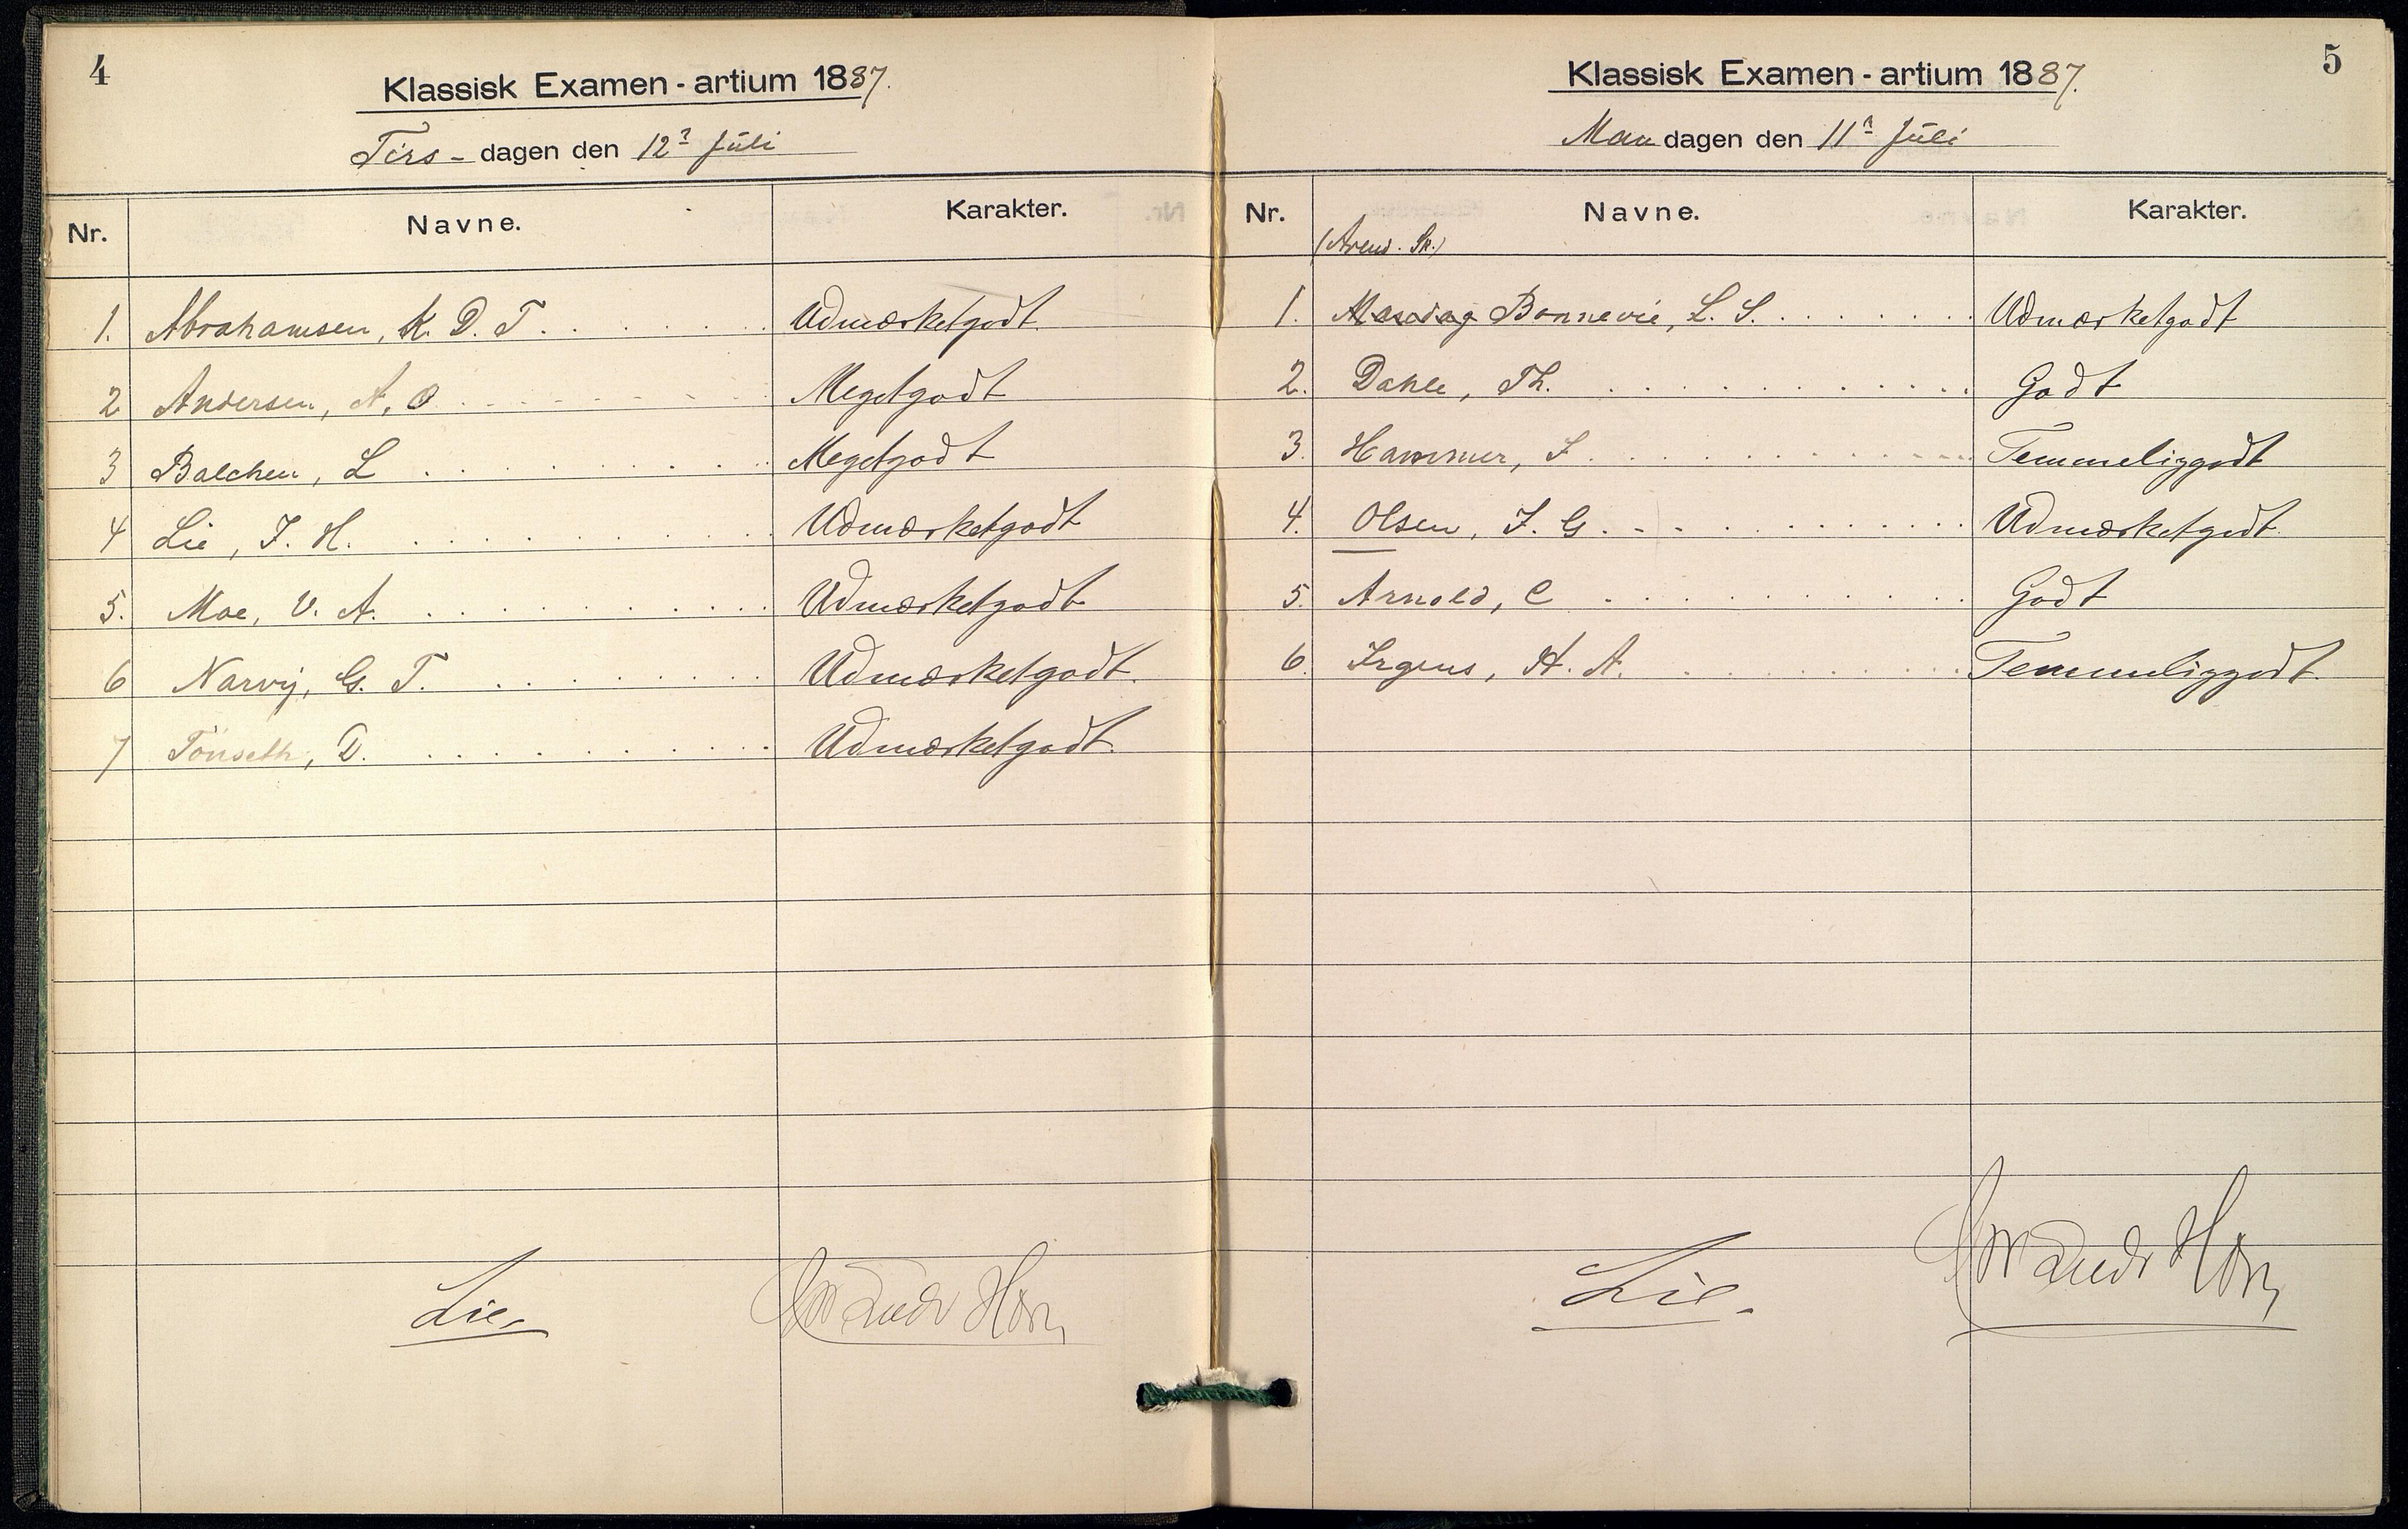 4
Klassisk Examen-artium 1887.
Tirs- dagen den 12? Juli
Nr. Navne. Karakter.
1. Abrahamsen, K. D. T. Udmærketgodt.
2 Andersen, A. O Megetgodt
3 Balchen, L Megetgodt
4 Lie, J. H. Udmærketgodt
5. Moe, V. A. Udmærketgodt
6 Narvij, G. T. Udmærketgodt.
7 Tönseth, D. Udmærketgodt.
Lie.
5
Klassisk Examen-artium 1887.
Man dagen den 11? Juli
Nr. Navne. Karakter.
(Arend. Sk.)
1. Bonnevie, L. S. Udmærketgodt
2. Dahle, Th. Godt
3. Hammer, J. Temmeliggodt
4. Olsen, J. G. Udmærketgodt.
5. Arnold, C Godt
6. Irgens, H. A. Temmeliggodt.
Lie.